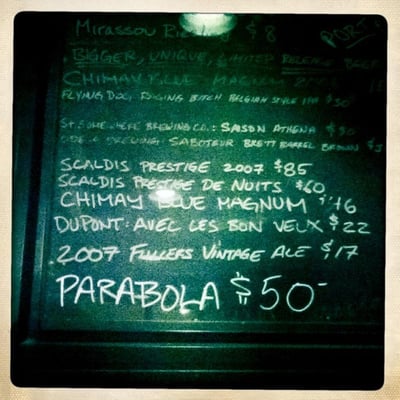 Mirassou $8
PORT
BIGGER, UNIQUE, LIMITED RELEASE BEER
CHIMAY BLUE MAGNUM
FLYING DOG RAGING BITCH BELGIAN STYLE IPA $30
BREWING CO.: SAISON ATHENA $30
BREWING: SABOTEUR BRETT BARREL BROWN
SCALDIS PRESTIGE 2007 $85
SCALDIS PRESTIGE DE NUITS $60
CHIMAY BLUE MAGNUM $46
DUPONT: AVEC LES BON VEUX $22
2007 FULLERS VINTAGE ALE $17
PARABOLA $50-